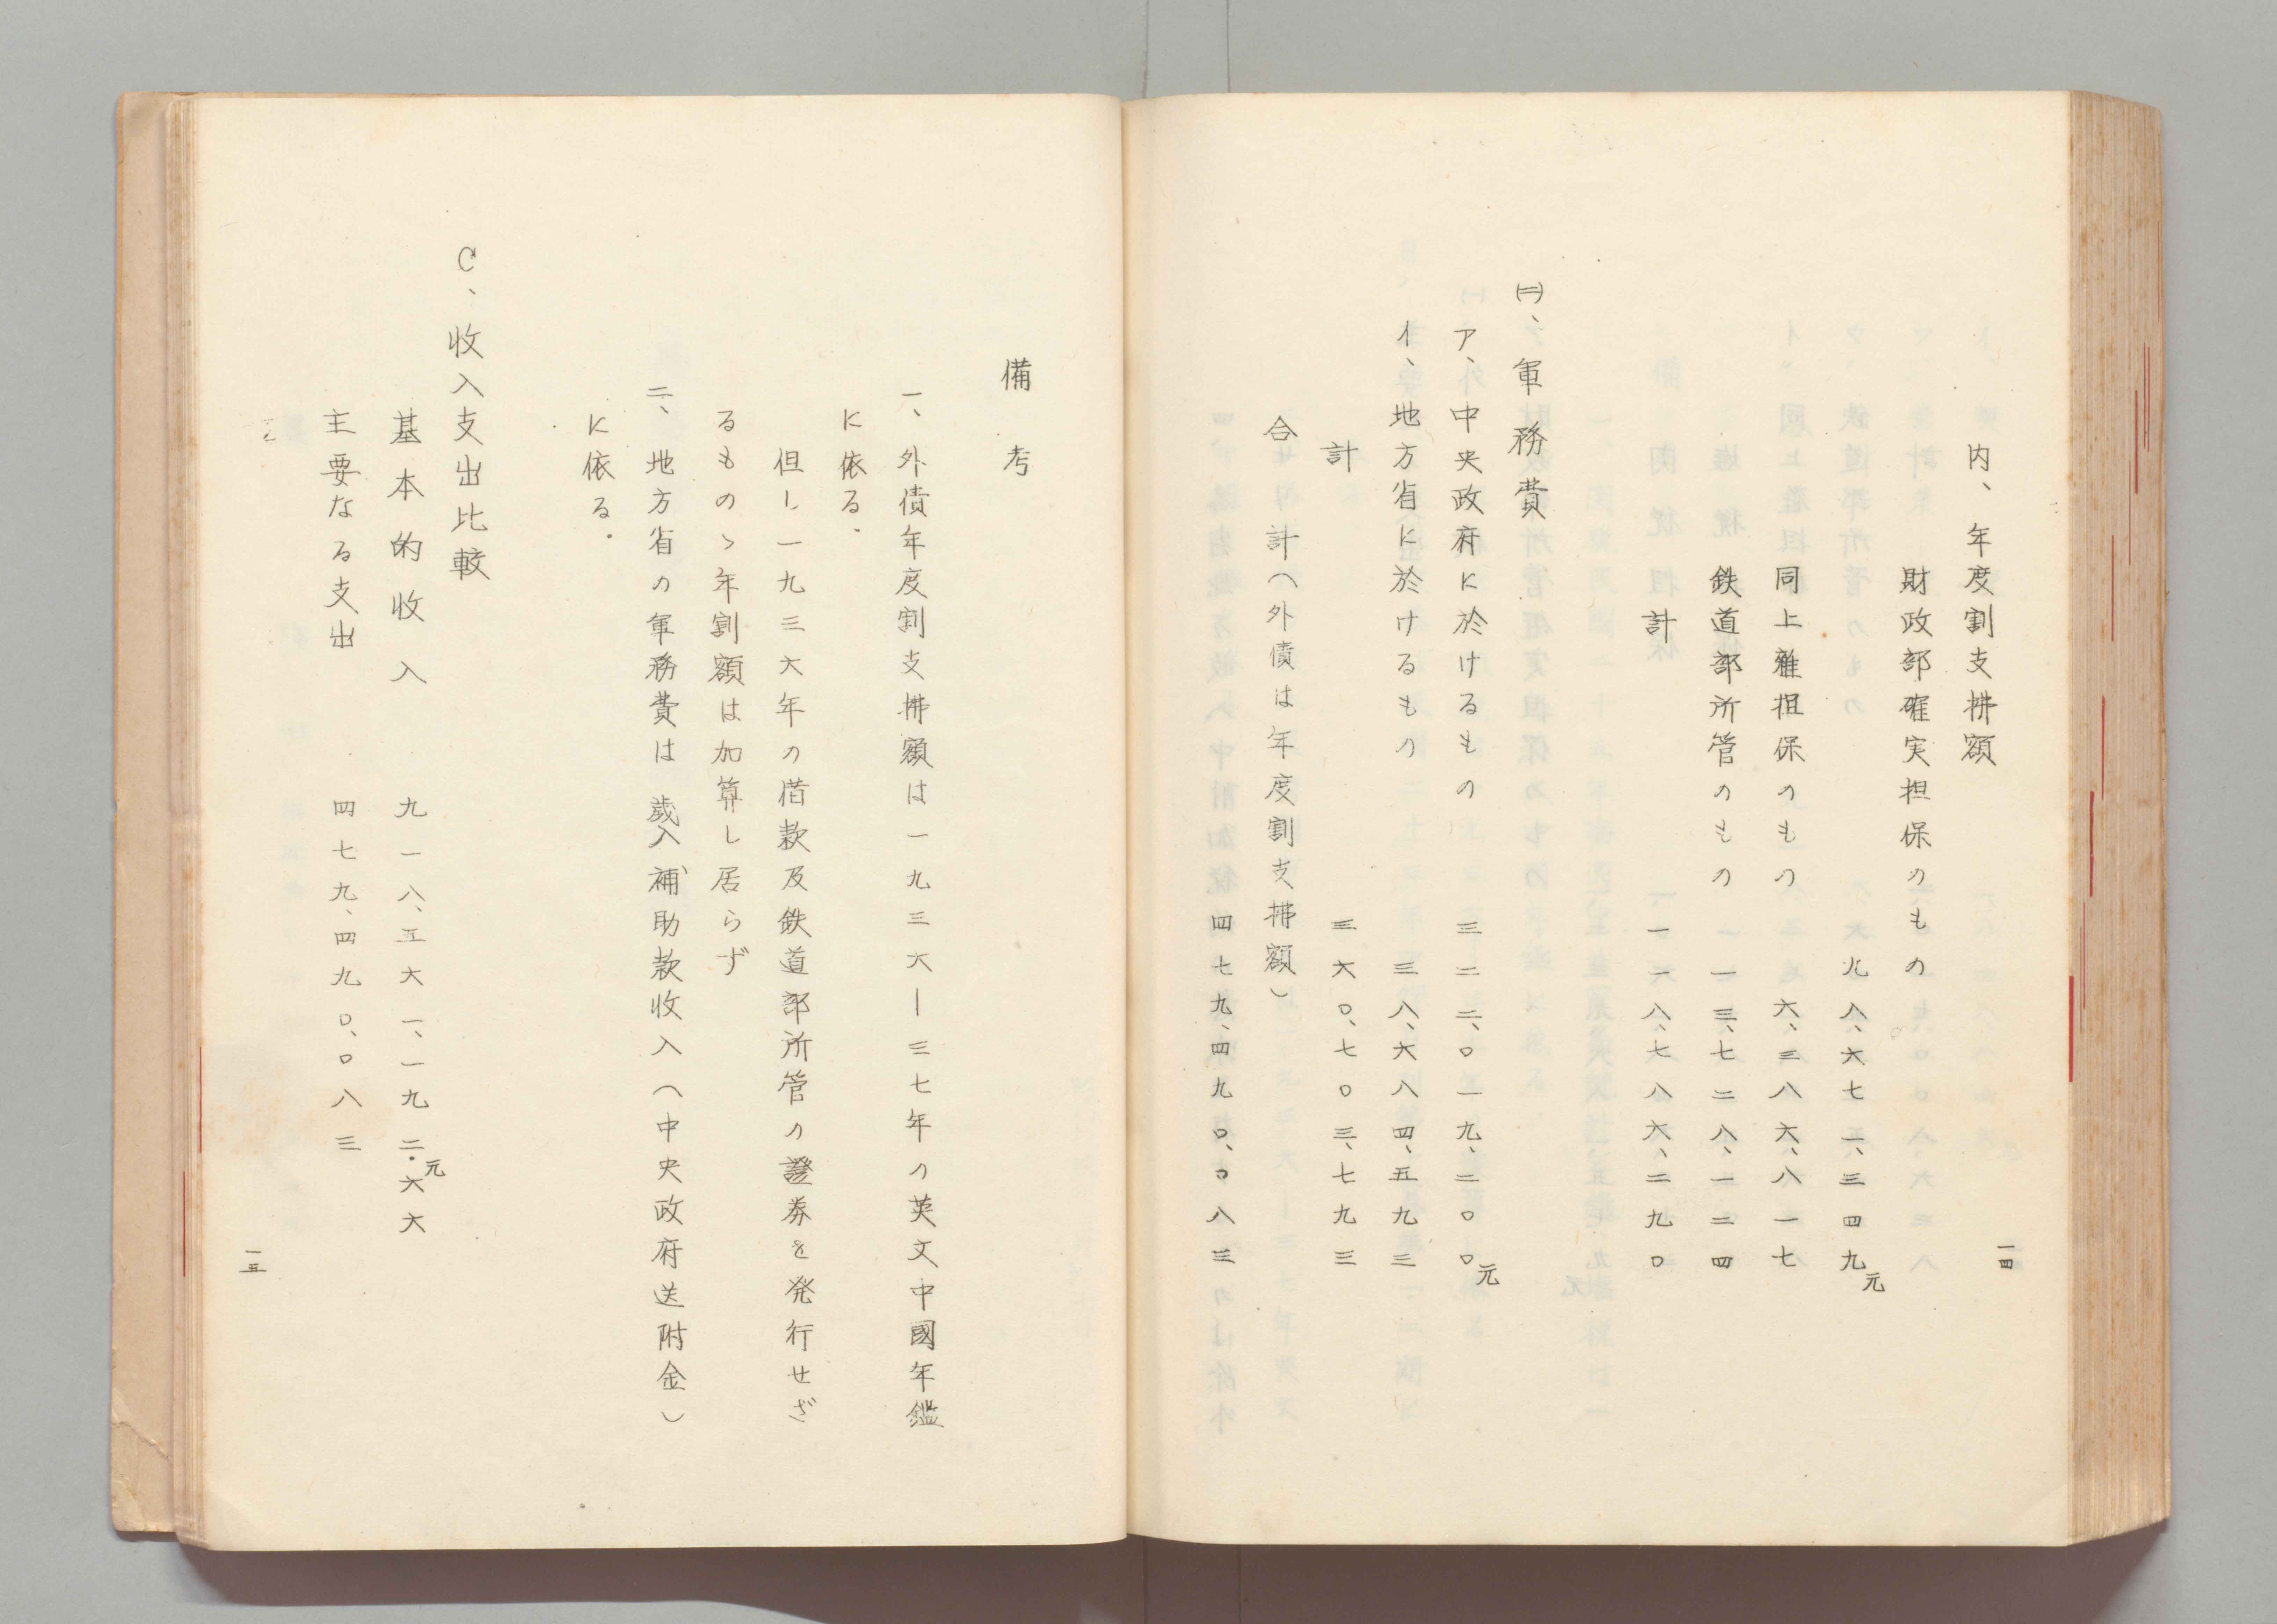 内、年度割支拂額
財政部確実担保のもの
九八、六七一、三四九元
同上雑担保のもの　六、三八六、八一七
鉄道部所管のもの　一一三、七二八、一二四
計　一一八、七八六、二九〇
㈡、軍務費
ア、中央政府に於けるもの　三二二、〇一九、二〇〇元
イ、地方省に於けるもの　三八、六八四、五九三
計　三六〇、七〇三、七九三
合計（外債は年度割支拂額）
四七九、四九〇、〇八三
一四
備考
一、外債年度割支拂額は一九三六―三七年の英文中國年鑑
に依る．
但し一九三六年の借款及鉄道部所管の證券を発行せざ
るものゝ年割額は加算し居らず
二、地方省の軍務費は歲入補助款收入（中央政府送附金）
に依る．
C、收入支出比較
基本的收入　九一八、五六一、一九二．六六元
主要なる支出　四七九、四九〇、〇八三
一五